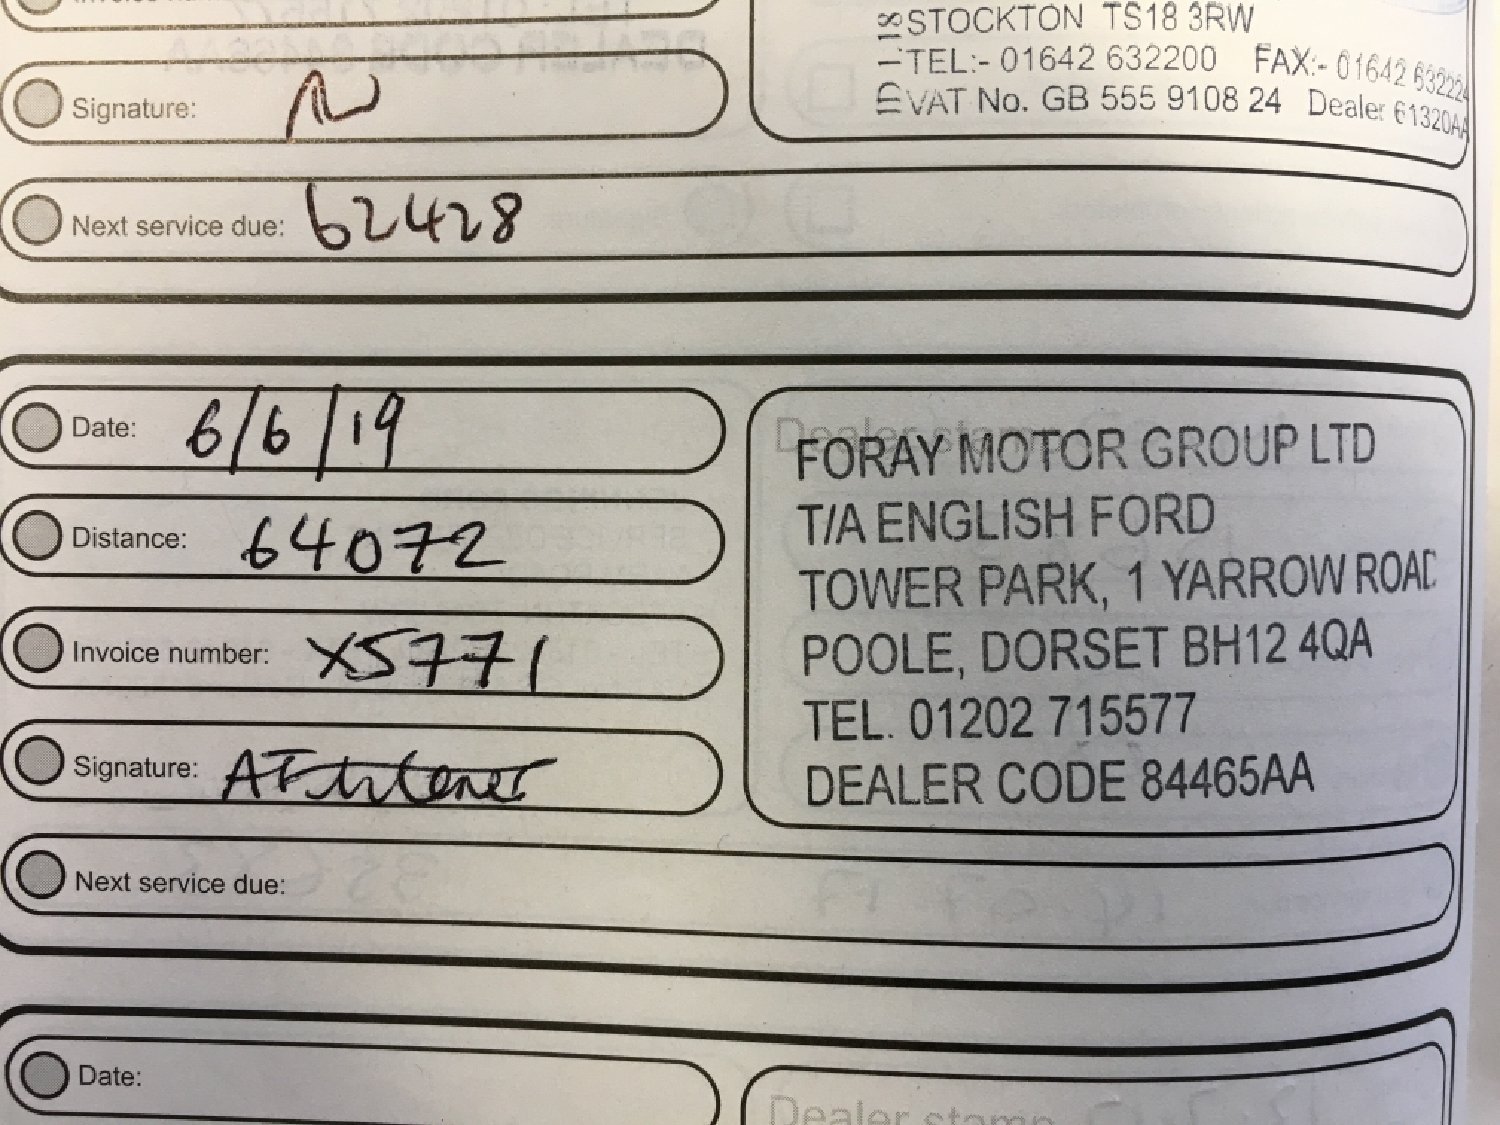 STOCKTON TS18 3RW
TEL:- 01642 632200 FAX:- 01642 632224
VAT No. GB 555 9108 24 Dealer 61320AA
Signature:
Next service due: 62428
Date: 6/6/19
Dealer stamp
FORAY MOTOR GROUP LTD
T/A ENGLISH FORD
TOWER PARK, 1 YARROW ROAD
POOLE, DORSET BH12 4QA
TEL. 01202 715577
DEALER CODE 84465AA
Distance: 64072
Invoice number: X5771
Signature:
Next service due:
Date:
Dealer stamp